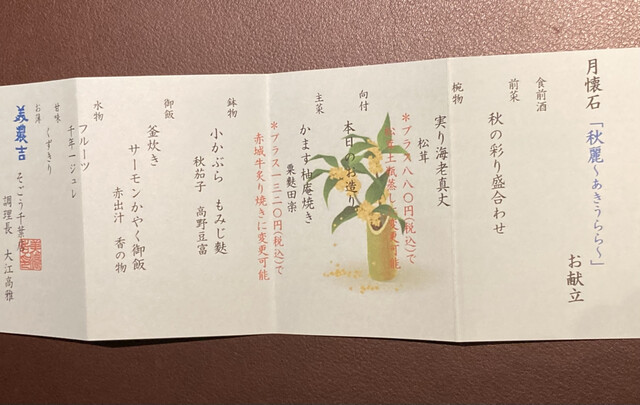 月懐石「秋麗～あきうらら～」
お献立
食前酒
前菜
秋の彩り盛合わせ
椀物
実り海老真丈
松茸
*プラス八八〇円(税込)で
土瓶蒸しに変更可能
向付
本日のお造り
主菜
かます柚庵焼き
粟麩田楽
*プラス一三二〇円(税込)で
赤城牛炙り焼きに変更可能
鉢物
小かぶら もみじ麩
秋茄子 高野豆富
御飯
釜炊き
サーモンかやく御飯
赤出汁 香の物
水物
フルーツ
千年一ジュレ
甘味
くずきり
お薄
美濃吉 そごう千葉店
調理長 大江高雅